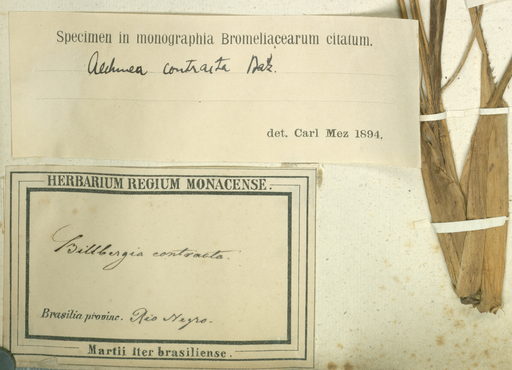 Specimen in monographia Bromeliacearum citatum.
Aechmea contracta Bak.
det. Carl Mez 1894.
HERBARIUM REGIUM MONACENSE.
Billbergia contracta.
Brasilia provinc. Rio Negro.
Martii Iter brasiliense.